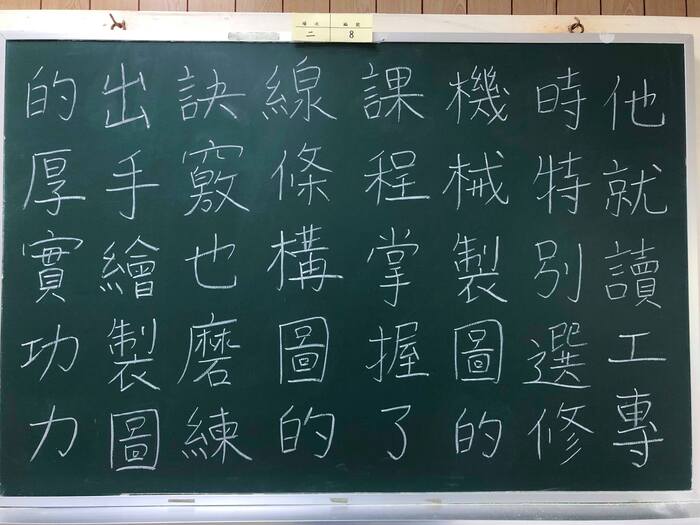 場次 編號
二 8
他就讀工專
時特別選修
機械製圖的
課程掌握了
線條構圖的
訣竅也磨練
出手繪製圖
的厚實功力